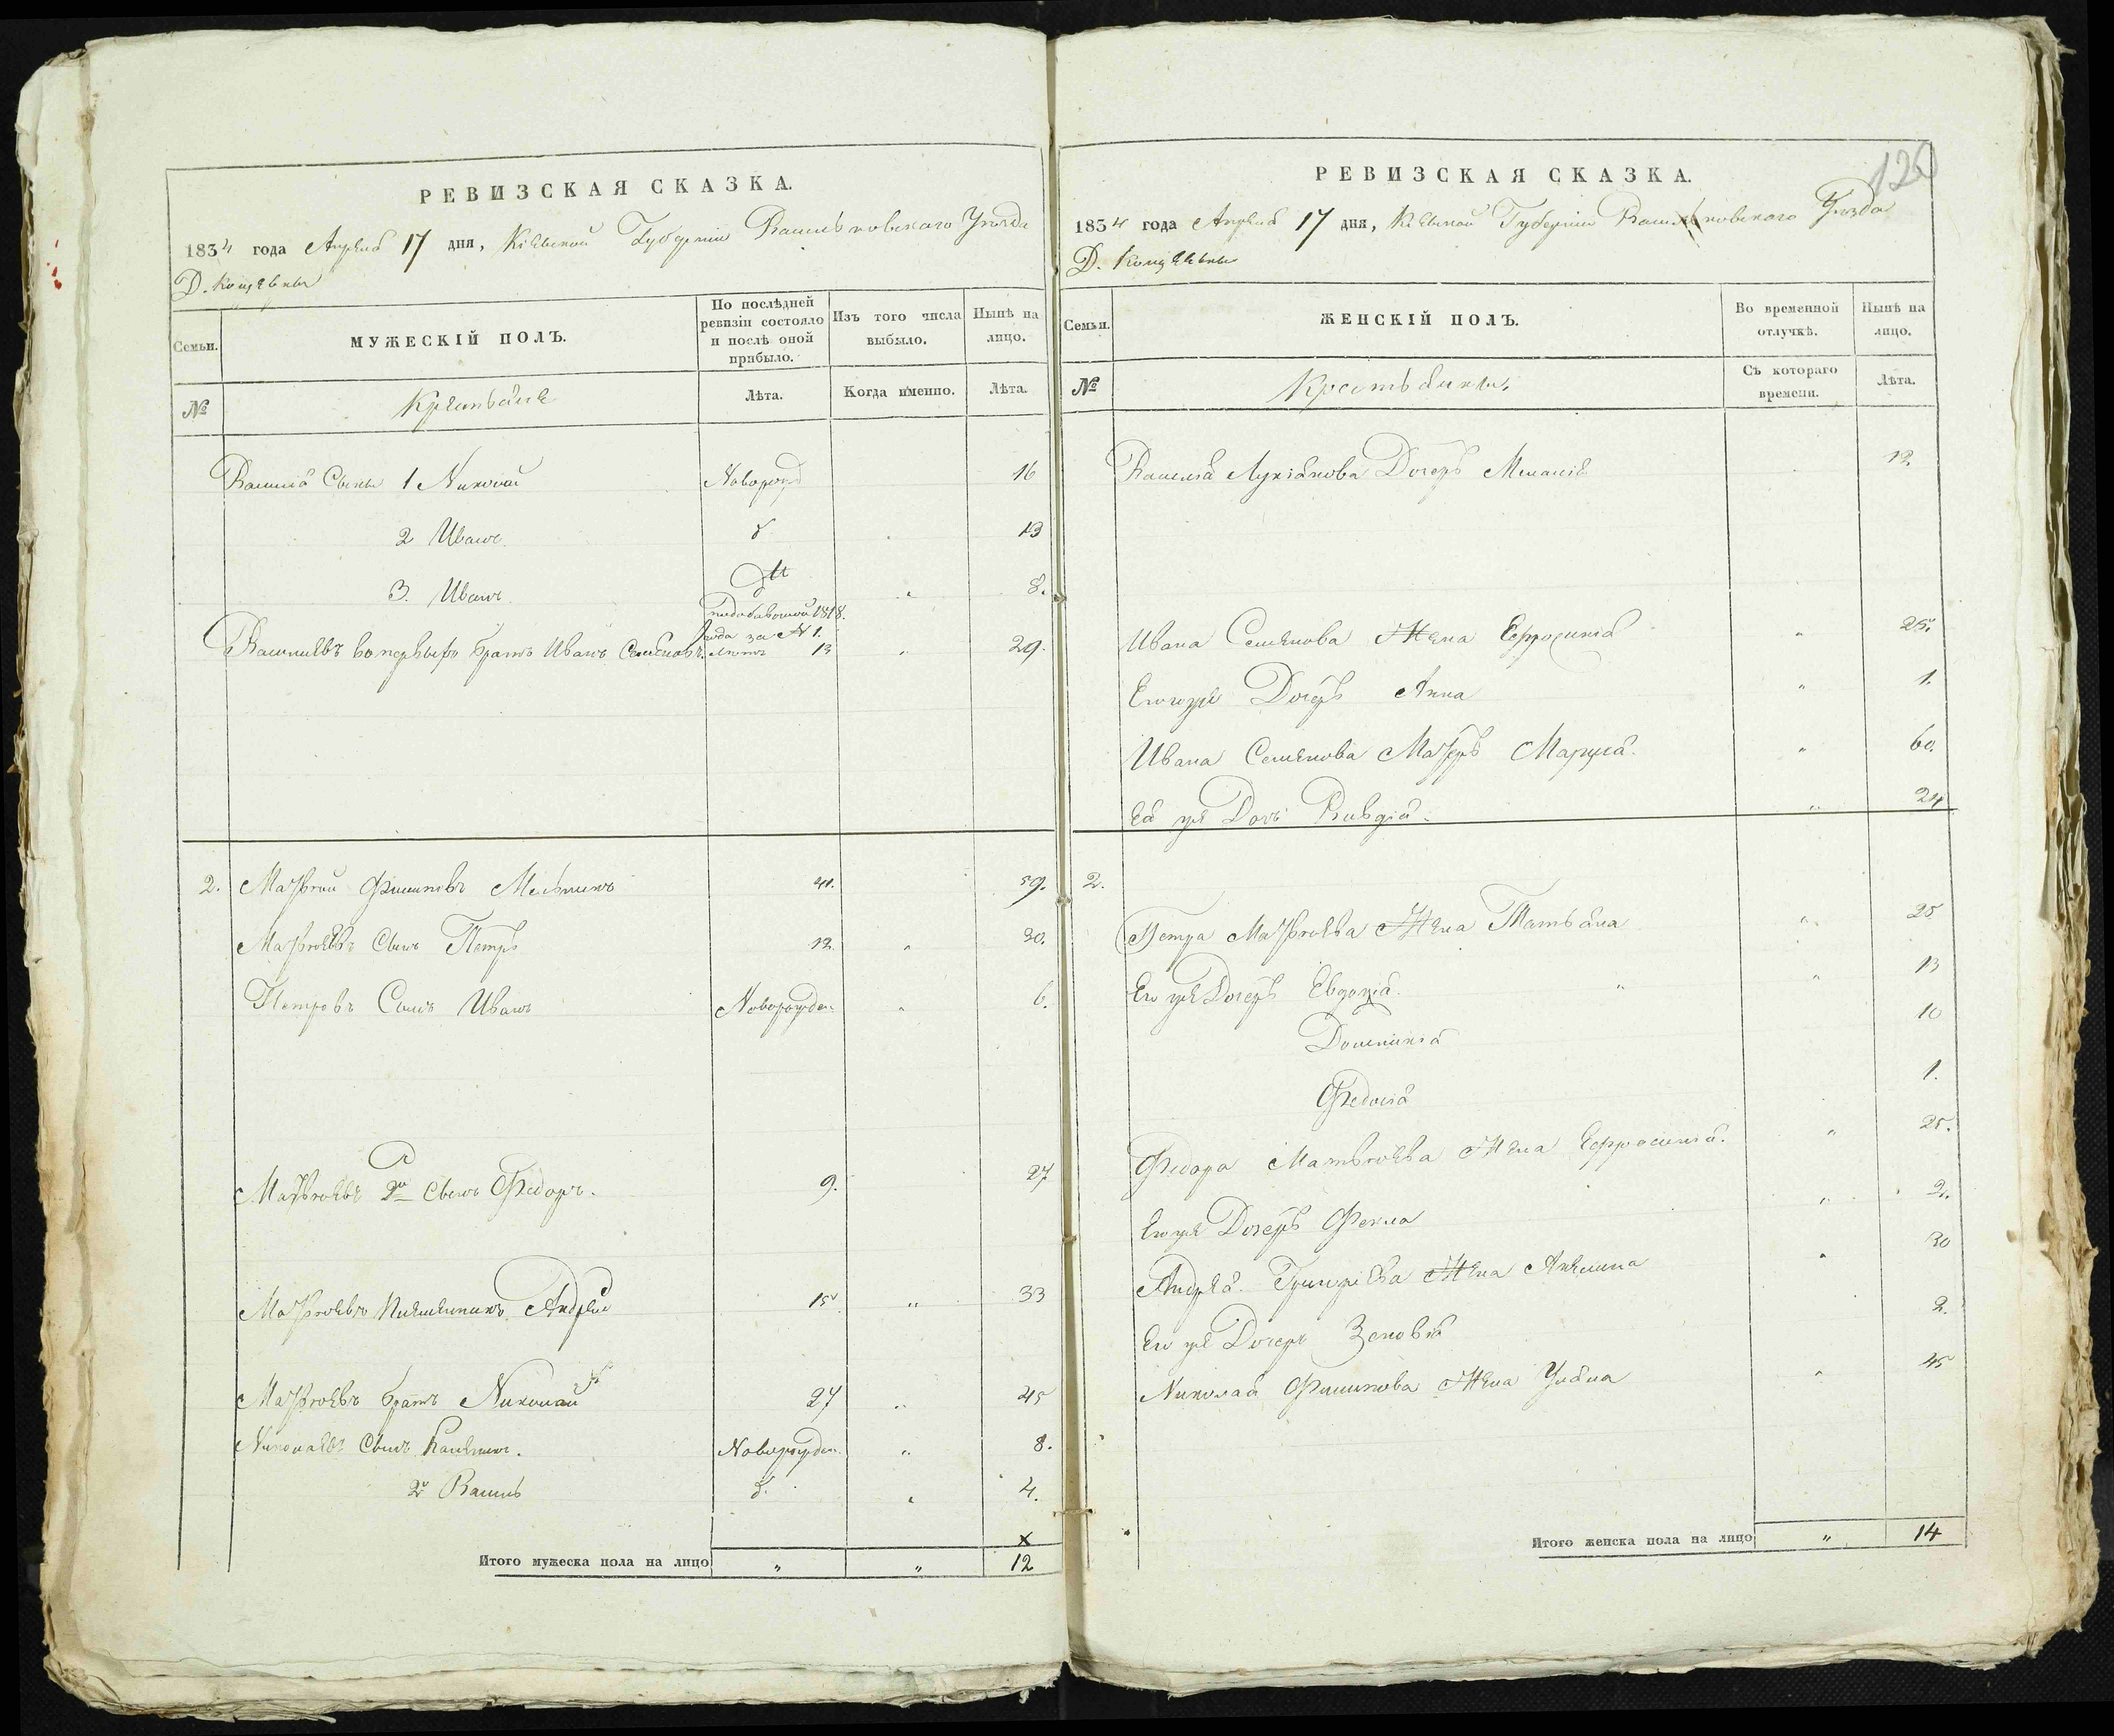 РЕВИЗСКАЯ СКАЗКА.
1834 года Апреля 17 дня, Кіевской Губерніи Васильковскаго Уезда
Семьи.
МУЖЕСКІЙ ПОЛЪ.
По послѣдней ревизіи состояло и послѣ оной прибыло.
Изъ того числа выбыло.
Нынѣ на лицо.
№
Крестьяне
Лѣта.
Когда именно.
Лѣта.
Василія Сыны 1 Николай Новорожд 16
2 Иванъ 13
3. Иванъ 8.
1818. года за № 1.
Василіевъ двоюродный братъ Иванъ Семеновъ. летъ 13 " 29.
2. Матвей Филиповъ Мельникъ 41. 59.
Матвеевъ Сынъ Петръ 12. " 30.
Петровъ Сынъ Иванъ Новорожден. " 6.
Матвеевъ 2й Сынъ Федоръ. 9. 27
Матвеевъ Племенникъ Андрей 15 " 33
Матвеевъ братъ Николай 27 " 45
Николаевъ Сынъ Новорожден. " 8.
2й Василь д. " 4.
x
Итого мужеска пола на лицо " " 12
120
РЕВИЗСКАЯ СКАЗКА.
1834 года Апреля 17 дня, Кіевской Губерніи Васильковскаго Уезда
Семьи.
ЖЕНСКІЙ ПОЛЪ.
Во временной отлучкѣ.
Нынѣ на лицо.
№
Крестьянки.
Съ котораго времени.
Лѣта.
Василія Лукіянова Дочерь Меланія 12.
Ивана Семенова Жена Ефросинія " 25.
Его же Дочерь Анна " 1.
Ивана Семенова Матерь Марія. " 60.
Ея же Дочь " 24
2.
Петра Матвеева Жена Татьяна " 25
Его же Дочерь Евдокія. " 13
Домникія 10
Федосія 1.
Федора Матвеева Жена Ефросинія. " 25.
Его же Дочерь Фекла " 2.
Андрея Григоріева Жена Акелина " 30
Его же Дочерь Зеновія 2.
Николая Филипова Жена Уляна " 45
Итого женска пола на лицо " 14